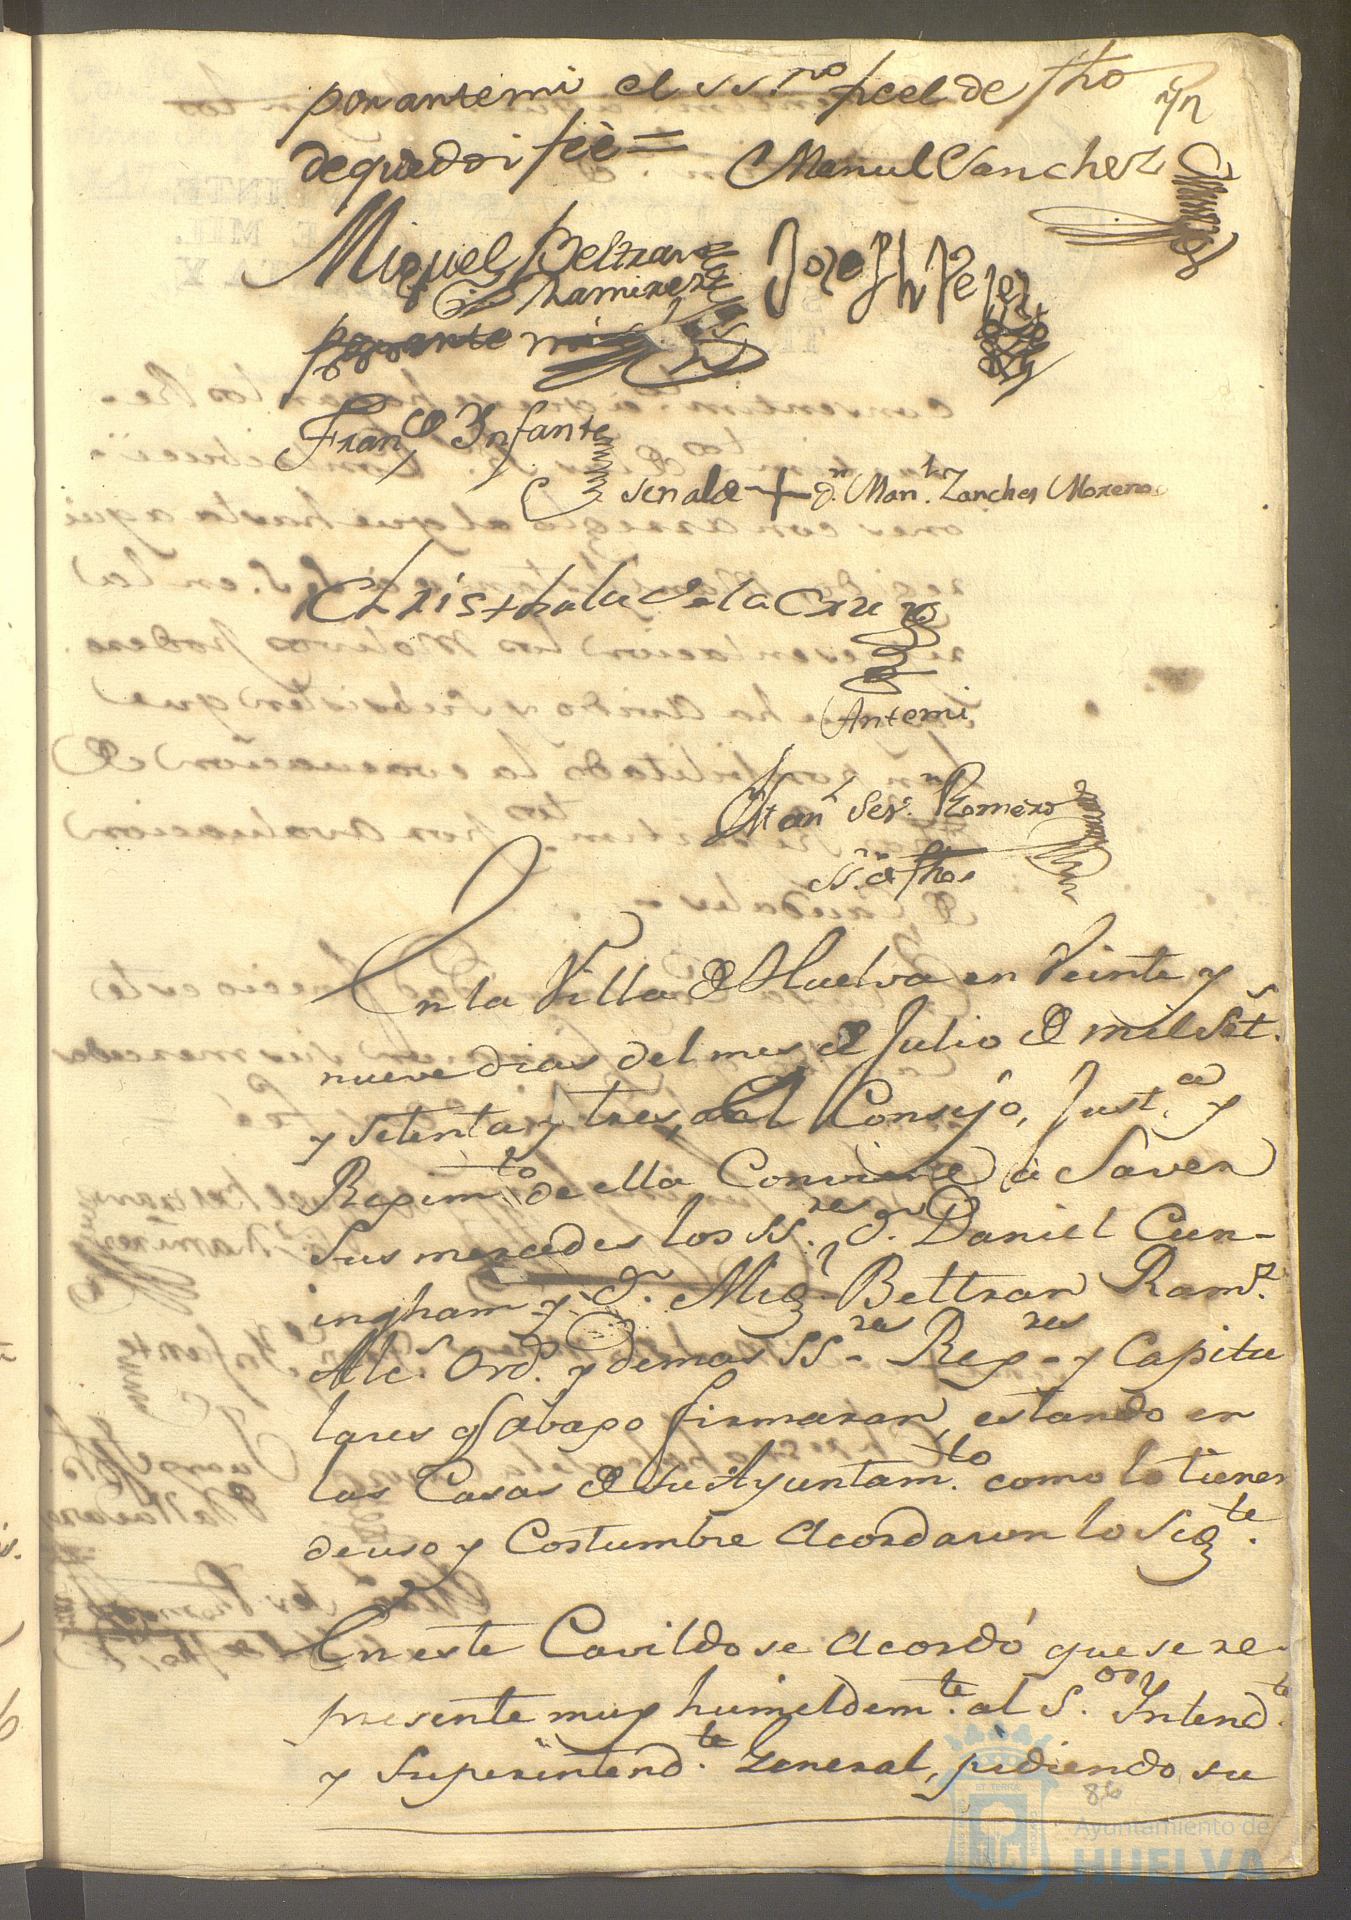 por antemi el ss.no fiel de fho
de que doi feè =
Manuel Sanchez
Miguel Beltran
Ramirez
Joseph Perez
por ante mi
Fran.co Ynfante
Señal de + dn Man.l Zanches Moreno
Christobal de la Cruz
Antemi
Man.l Ser.n Romero
ss.no de fhos
En la Villa de Huelva en Veinte y
nueve dias del mes de Julio de mil Set.s
y setenta y tres, el Consejo, Just.a y
Regim.to de ella Conviene à Saver
Sus mercedes los SS.res dn. Daniel Cun-
ingham y dn. Mig.l Beltran Ram.z
Alc.s Ord.s y demas SS.res Reg.res y Capitu
lares q Abajo firmaran estando en
las Casas de su Ayuntam.to como lo tienen
de uso y Costumbre Acordaron lo Sig.te.
En este Cavildo se Acordó que se re-
presente muy humeldem.te al S.or Yntend.te
y Superintend.te General, pidiendo su
86
Ayuntamiento de
HUELVA